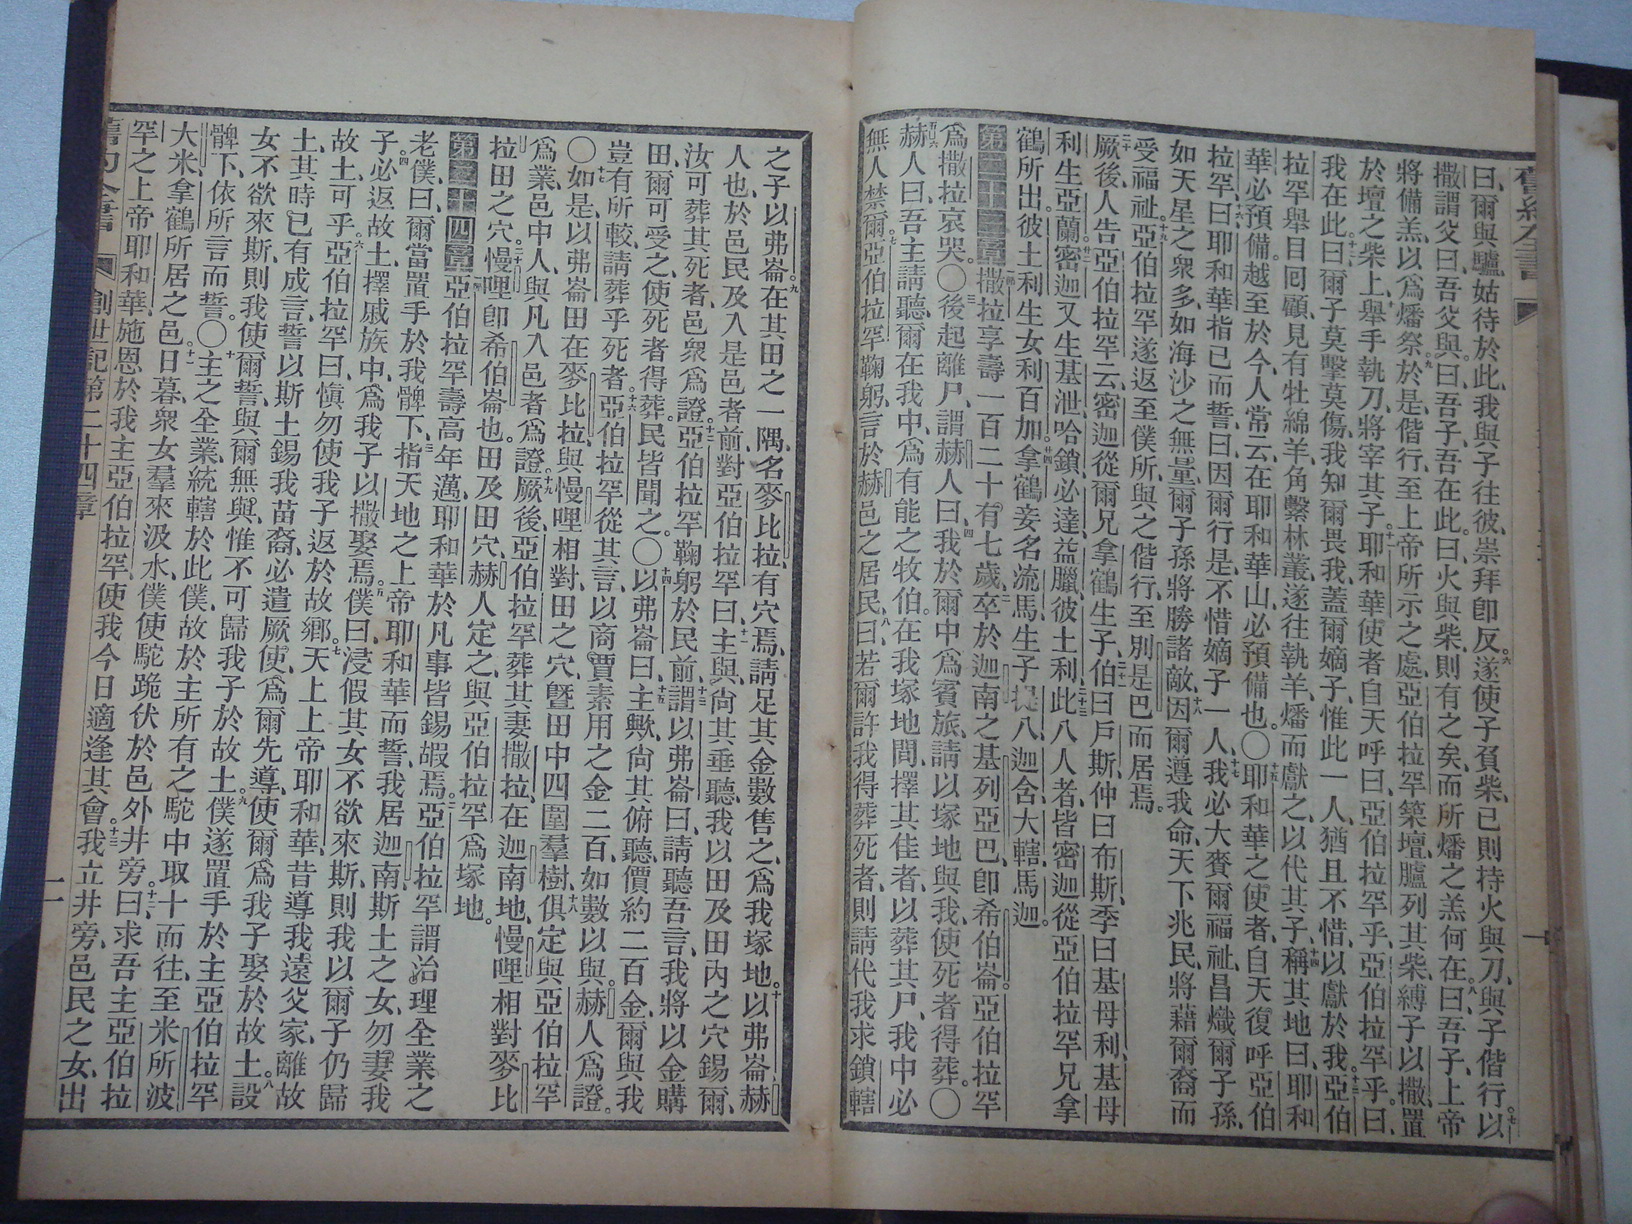 曰、爾與驢姑待於此、我與子往彼、崇拜卽反。六遂使子負柴、已則持火與刀、與子偕行。七以
撒謂父曰、吾父與。曰、吾子、吾在此。曰、火與柴、則有之矣、而所燔之羔何在。八曰、吾子、上帝
將備羔、以爲燔祭、於是偕行。九至上帝所示之處、亞伯拉罕築壇、臚列其柴、縛子以撒、置
於壇之柴上、十舉手執刀、將宰其子。十一耶和華使者自天呼曰、亞伯拉罕乎、亞伯拉罕乎。曰、
我在此。十二曰、爾子莫擊莫傷、我知爾畏我、蓋爾嫡子、惟此一人、猶且不惜、以獻於我。十三亞伯
拉罕舉目囘顧、見有牡綿羊、角繫林叢、遂往執羊、燔而獻之、以代其子。十四稱其地曰、耶和
華必預備。越至於今、人常云、在耶和華山、必預備也。〇十五耶和華之使者、自天復呼亞伯
拉罕、十六曰、耶和華指已而誓曰、因爾行是、不惜嫡子一人、十七我必大賚爾福祉、昌熾爾子孫、
如天星之衆多、如海沙之無量、爾子孫將勝諸敵、十八因爾遵我命、天下兆民、將藉爾裔而
受福祉。十九亞伯拉罕遂返至僕所、與之偕行、至別是巴而居焉。
二十厥後、人告亞伯拉罕云、密迦從爾兄拿鶴生子、二十一伯曰戶斯、仲曰布斯、季曰基母利、基母
利生亞蘭。廿二密迦又生基泄、哈鎖、必達、益臘、彼土利。二十三此八人者、皆密迦從亞伯拉罕兄拿
鶴所出。彼土利生女利百加。廿四拿鶴妾名流馬、生子提八、迦含、大轄、馬迦。
第二十三章 一撒拉享壽一百二十有七歲、二卒於迦南之基列亞巴、卽希伯崙。亞伯拉罕
爲撒拉哀哭。〇三後起離尸、謂赫人曰、四我於爾中、爲賓旅、請以塚地與我、使死者得葬。〇
五六赫人曰、吾主請聽、爾在我中、爲有能之牧伯、在我塚地間、擇其佳者、以葬其尸、我中必
無人禁爾。七亞伯拉罕鞠躬、言於赫邑之居民、八曰、若爾許我得葬死者、則請代我求鎖轄
之子以弗崙。九在其田之一隅、名麥比拉、有穴焉、請足其金數售之、爲我塚地。十以弗崙、赫
人也、於邑民及入是邑者前、對亞伯拉罕曰、十一主與、尙其垂聽、我以田及田內之穴錫爾、
汝可葬其死者、邑衆爲證。十二亞伯拉罕鞠躬於民前、十三謂以弗崙曰、請聽吾言、我將以金購
田、爾可受之、使死者得葬、民皆聞之。〇十四以弗崙曰、十五主歟、尙其俯聽、價約二百金、爾與我
豈有所較、請葬乎死者。十六亞伯拉罕從其言、以商賈素用之金二百、如數以與。赫人爲證。
〇十七如是、以弗崙田在麥比拉、與慢哩相對、田之穴暨田中四圍羣樹、十八俱定與亞伯拉罕
爲業、邑中人、與凡入邑者、爲證。十九厥後、亞伯拉罕葬其妻撒拉在迦南地、慢哩相對麥比
拉田之穴、慢哩卽希伯崙也。二十田及田穴、赫人定之與亞伯拉罕、爲塚地。
第二十四章 一亞伯拉罕壽高年邁、耶和華於凡事皆錫嘏焉。二亞伯拉罕謂治理全業之
老僕曰、爾當置手於我髀下、三指天地之上帝耶和華而誓、我居迦南、斯土之女、勿妻我
子。四必返故土、擇戚族中、爲我子以撒娶焉。五僕曰、浸假其女不欲來斯、則我以爾子仍歸
故土可乎。六亞伯拉罕曰、愼勿使我子返於故鄉。七天上上帝耶和華、昔導我遠父家、離故
土、其時已有成言、誓以斯土錫我苗裔、必遣厥使、爲爾先導、使爾爲我子娶於故土。八設
女不欲來斯、則我使爾誓、與爾無與、惟不可歸我子於故土。九僕遂置手於主亞伯拉罕
髀下、依所言而誓。〇十主之全業、統轄於此僕、故於主所有之駝中取十而往、至米所波
大米拿鶴所居之邑。十一日暮、衆女羣來汲水、僕使駝跪伏於邑外井旁。十二曰、求吾主亞伯拉
罕之上帝耶和華、施恩於我主亞伯拉罕、使我今日適逢其會。十三我立井旁、邑民之女、出
創世記第二十四章